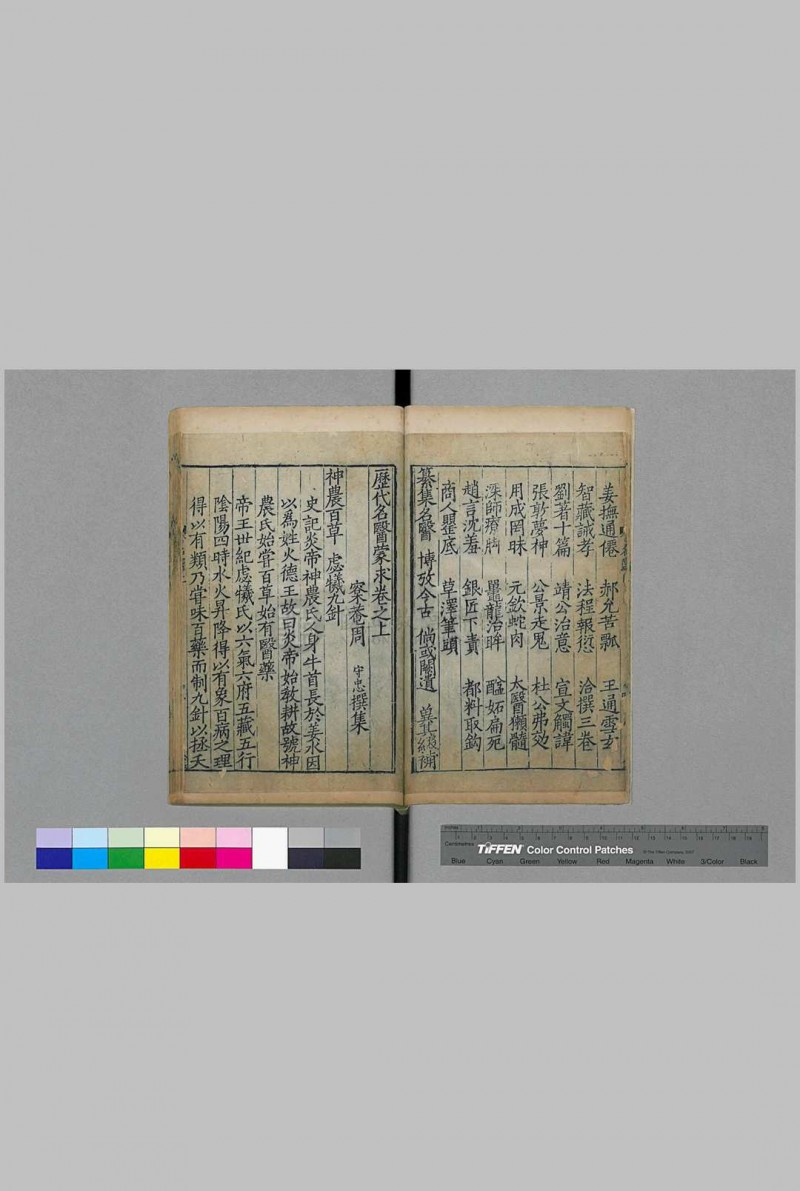 姜撫通僊 郝允苦瓢 王通雪玄
智藏誡孝 法程報愆 洽撰三卷
劉著十篇 靖公治意 宣文觸諱
張彭夢神 公景走鬼 杜公弗効
用成罔昧 元欽蛇肉 太醫獺髓
深師療 龍治眸 醯妬扁死
趙言沈羞 銀匠下責 都料取鈎
商人罌底 草澤筆頭
纂集名醫 博攷今古 倘或闕遺
歷代名醫蒙求卷之上
察菴周 守忠撰集
神農百草 虙犧九針
史記炎帝神農氏人身牛首長於姜水因
以為姓火德王故曰炎帝始敎耕故號神
農氏始甞百草始有醫藥
帝王世紀虙犧氏以六氣六府五藏五行
陰陽四時水火昇降得以有象百病之理
得以有類乃甞味百藥而制九針以拯夭
Inches
Centimetres
TIFFEN Color Control Patches
Blue Cyan Green Yellow Red Magenta White 3/Color Black